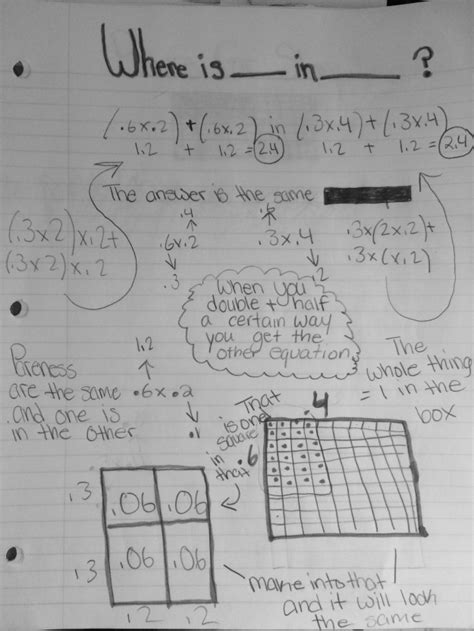 Where is ___ in ___ ?
(.6x.2) + (.6x.2) in (.3x.4) + (.3x.4)
1.2 + 1.2 = 2.4 1.2 + 1.2 = 2.4
The answer is the same
(.3x2)x.2+
(.3x2)x.2
.4
.6x.2
.3
.3x.4
.2
.3x(2x.2)+
.3x(x.2)
When you
double + half
a certain way
you get the
other equation
1.2
are the same .6x.2
and one is
in the other
.1
The
whole thing
= 1 in the
box
That
is one
square
in
that
.4
.6
.3 .06 .06
.3 .06 .06
.2 .2
make into that
and it will look
the same